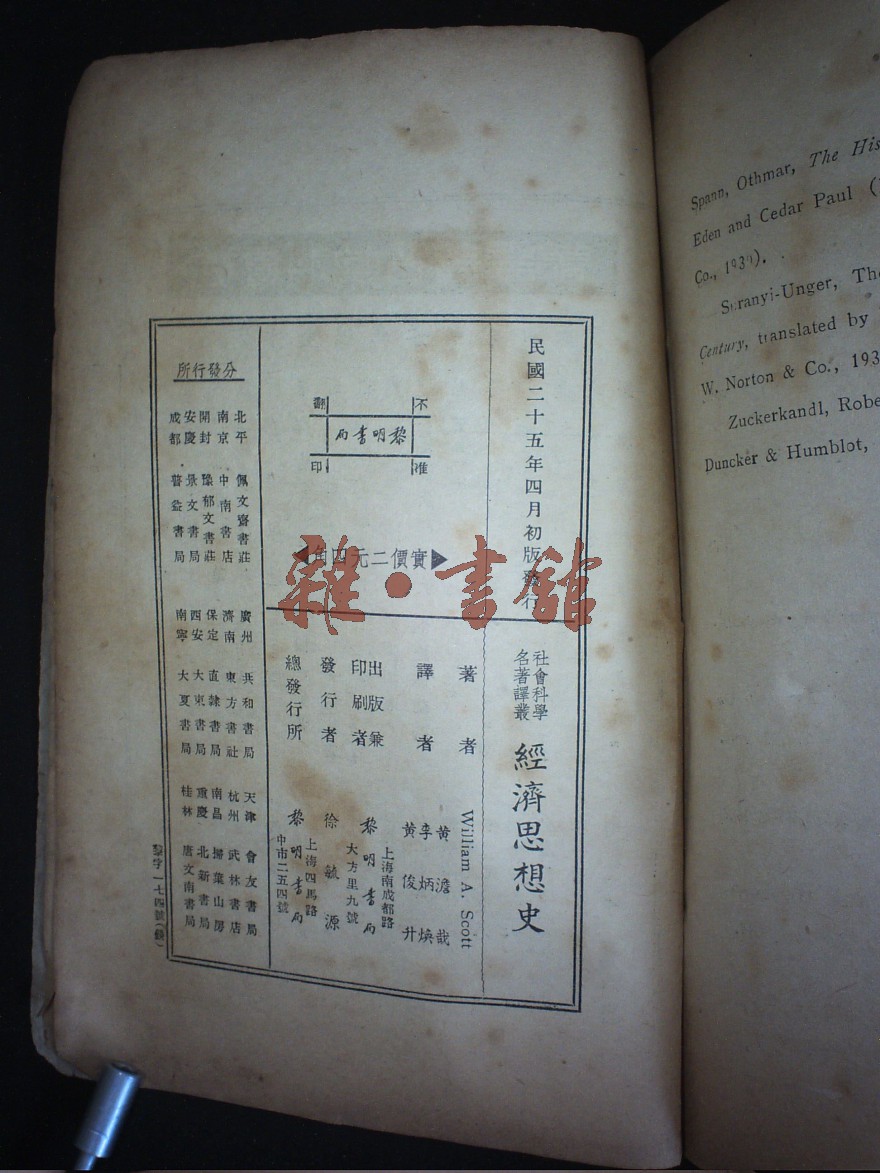 民國二十五年四月初版發行
社會科學
名著譯叢
經濟思想史
不准
翻印
黎明書局
實價二元四角
著者 William A. Scott
譯者 黃澹哉
李炳煥
黃俊升
出版兼
印刷者 黎明書局
上海南成都路
大方里九號
發行者 徐毓源
總發行所 黎明書局
上海四馬路
中市二五四號
分發行所
北平 佩文齋書莊
南京 中南書店
開封 豫郁文書莊
安慶 景文書局
成都 普益書局
廣州 共和書局
濟南 東方書社
保定 直隸書局
西安 大東書局
南寧 大夏書局
天津 會友書局
杭州 武林書店
南昌 掃葉山房
重慶 北新書局
桂林 唐文南書局
黎字一七四號
雜·書舘
Spann, Othmar, The His
Eden and Cedar Paul (
Co., 1930).
Suranyi-Unger, The
Century, translated by
W. Norton & Co., 193
Zuckerkandl, Robe
Duncker & Humblot,